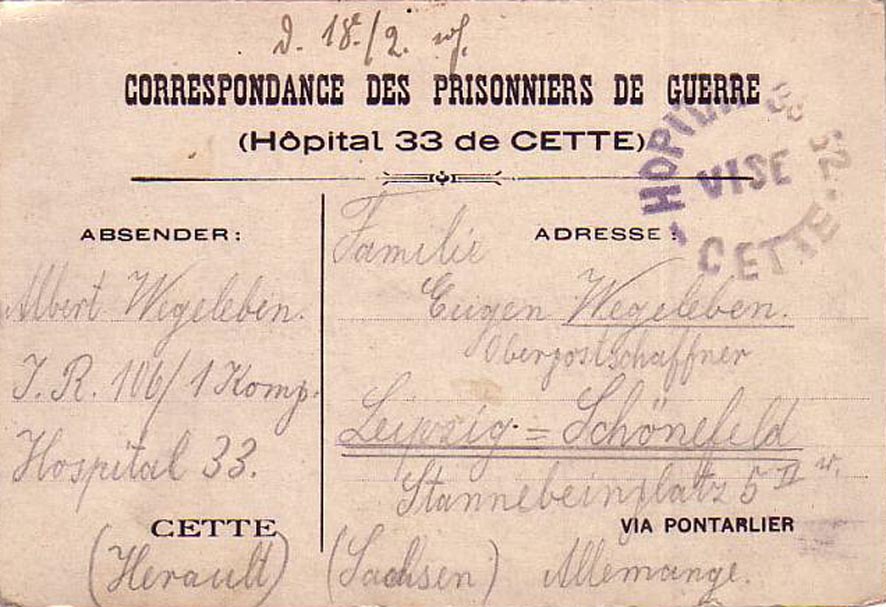 d. 18t./2.
CORRESPONDANCE DES PRISONNIERS DE GUERRE
(Hôpital 33 de CETTE)
HOPITAL 52
VISE
CETTE
ABSENDER:
Albert Wegeleben.
J. R. 106/1 Komp.
Hospital 33.
CETTE
(Herault)
ADRESSE:
Familie
Eugen Wegeleben.
Oberpostschaffner
Leipzig = Schönefeld
Stannebeinplatz 5 II w.
VIA PONTARLIER
(Sachsen) Allemange.